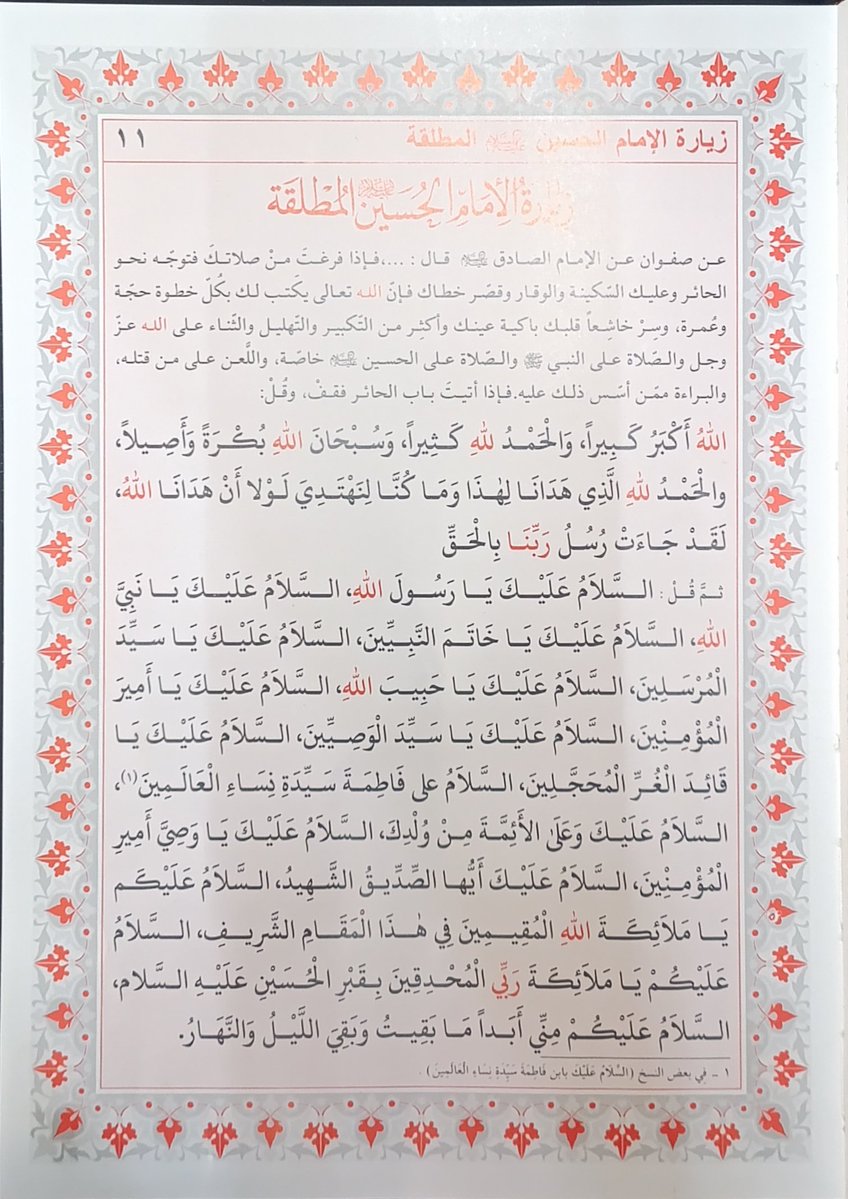 زيارة الإمام الحسين عليه السلام المطلقة ١١
زيارة الإمام الحسين عليه السلام المطلقة
عـن صفـوان عـن الإمـام الصـادق عليه السلام قـال : ...،فـإذا فرغـتَ مـنْ صلاتـكَ فتوجّـه نحـو
الحائـر وعليـك السّـكينـة والوقـار وقصّـر خطـاك فـإنّ الله تعـالى يكتـب لـك بـكُلّ خطـوة حجّـة
وعُمـرة، وسِـرْ خاشِـعاً قلبـك باكيـة عينـك وأكثِـر مـن التّـكبير والتّهليـل والثّنـاء علـى الله عـزّ
وجـل والصّـلاة علـى النبـي ﷺ والصّـلاة علـى الحسـين عليه السلام خاصّـة، واللّعـن علـى مـن قتلـه،
والبـراءة ممّـن أسّـس ذلـك عليـه.فـإذا أتيـتَ بـاب الحائـر فقـفْ، وقُـلْ:
اللهُ أَكْبَرُ كَـبِيراً، وَالْحَمْـدُ للهِ كَـثِيراً، وَسُـبْحَانَ اللهِ بُكْـرَةً وَأَصِـيلاً،
والْحَمْـدُ للهِ الَّذِي هَدَانَـا لِهٰـذَا وَمَـا كُنَّـا لِنَهْتَـدِيَ لَـوْلا أَنْ هَدَانَـا اللهُ،
لَقَـدْ جَـاءَتْ رُسُـلُ رَبِّنَـا بِالْحَـقِّ
ثـمَّ قُـلْ : السَّـلَامُ عَلَيْـكَ يَـا رَسُـولَ اللهِ، السَّـلَامُ عَلَيْـكَ يَـا نَبِيَّ
اللهِ، السَّـلَامُ عَلَيْـكَ يَـا خَاتَـمَ النَّبِيِّـينَ، السَّـلَامُ عَلَيْـكَ يَـا سَـيِّدَ
الْمُرْسَـلِينَ، السَّـلَامُ عَلَيْـكَ يَـا حَبِيـبَ اللهِ، السَّـلَامُ عَلَيْـكَ يَـا أَمِيرَ
الْمُؤْمِنِـيْنَ، السَّـلَامُ عَلَيْـكَ يَـا سَـيِّدَ الْوَصِيِّـينَ، السَّـلَامُ عَلَيْـكَ يَـا
قَائِـدَ الْغُـرِّ الْمُحَجَّـلِينَ، السَّـلَامُ على فَاطِمَـةَ سَـيِّدَةِ نِسَـاءِ الْعَالَمِـينَ(١)،
السَّـلَامُ عَلَيْـكَ وَعَلَىٰ الأَئِمَّـةَ مِـنْ وُلْدِكَ، السَّـلَامُ عَلَيْـكَ يَـا وَصِيَّ أَمِيرِ
الْمُؤْمِنِـيْنَ، السَّـلَامُ عَلَيْـكَ أَيُّهـا الصِّدِّيـقُ الشَّـهِيدُ، السَّـلَامُ عَلَيْكَـم
يَـا مَلَائِكَـةَ اللهِ الْمُقِيمِـينَ فِي هٰـذَا الْمَقَـامِ الشَّرِيـفِ، السَّـلَامُ
عَلَيْكُـمْ يَـا مَلَائِكَـةَ رَبِّي الْمُحْدِقِينَ بِـقَبْرِ الْحُسَـيْنِ عَلَيْـهِ السَّـلام،
السَّـلَامُ عَلَيْكُـمْ مِنِّي أَبَـداً مَـا بَقِيـتُ وَبَقِيَ اللَّيْـلُ وَالنَّهَـارُ.
١ - فِي بعض النسخ (السَّلَامُ عَلَيْكَ يابن فَاطِمَةَ سَيِّدَةِ نِسَاءِ الْعَالَمِينَ) .